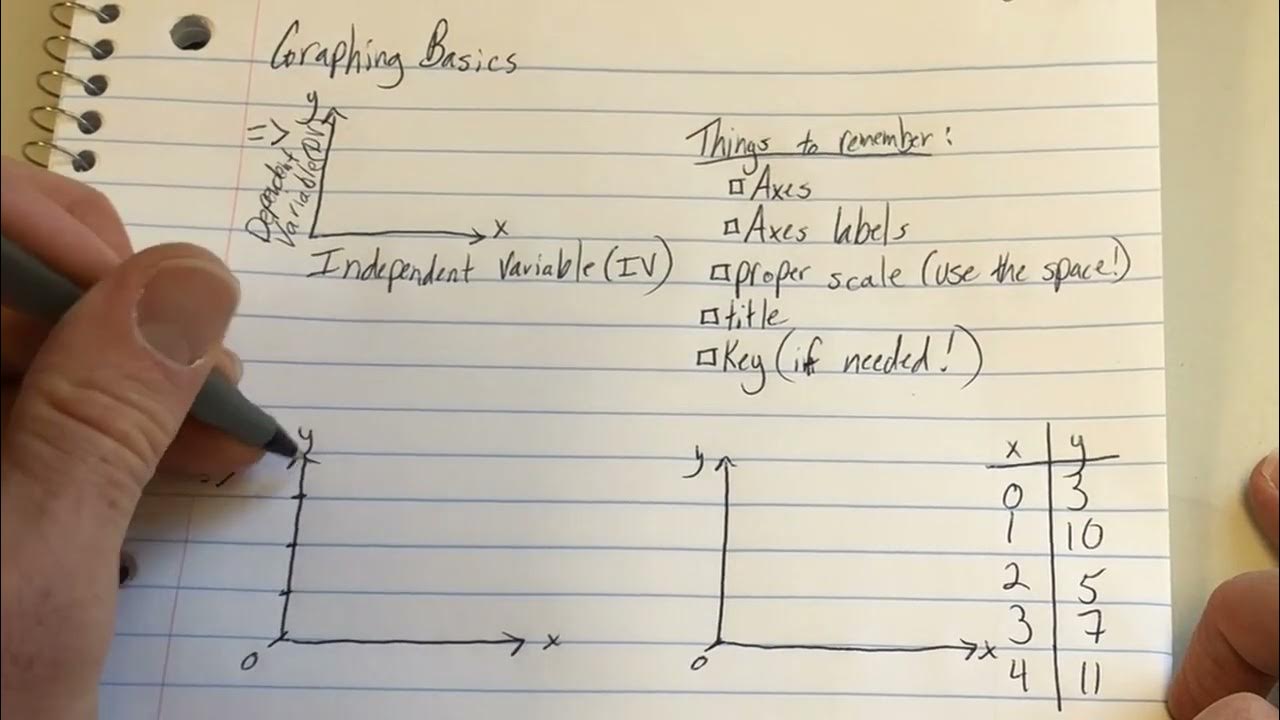 Graphing Basics
y
=> Dependent
Variable (DV)
x
Independent Variable (IV)
Things to remember:
Axes
Axes labels
proper scale (use the space!)
title
Key (if needed!)
y
x
0
y
x
0
x y
0 3
1 10
2 5
3 7
4 11